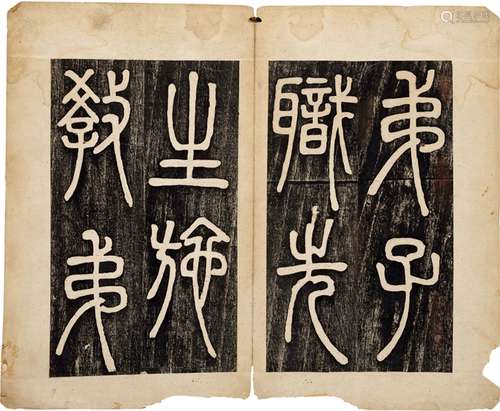 弟子
職先
生施
教弟